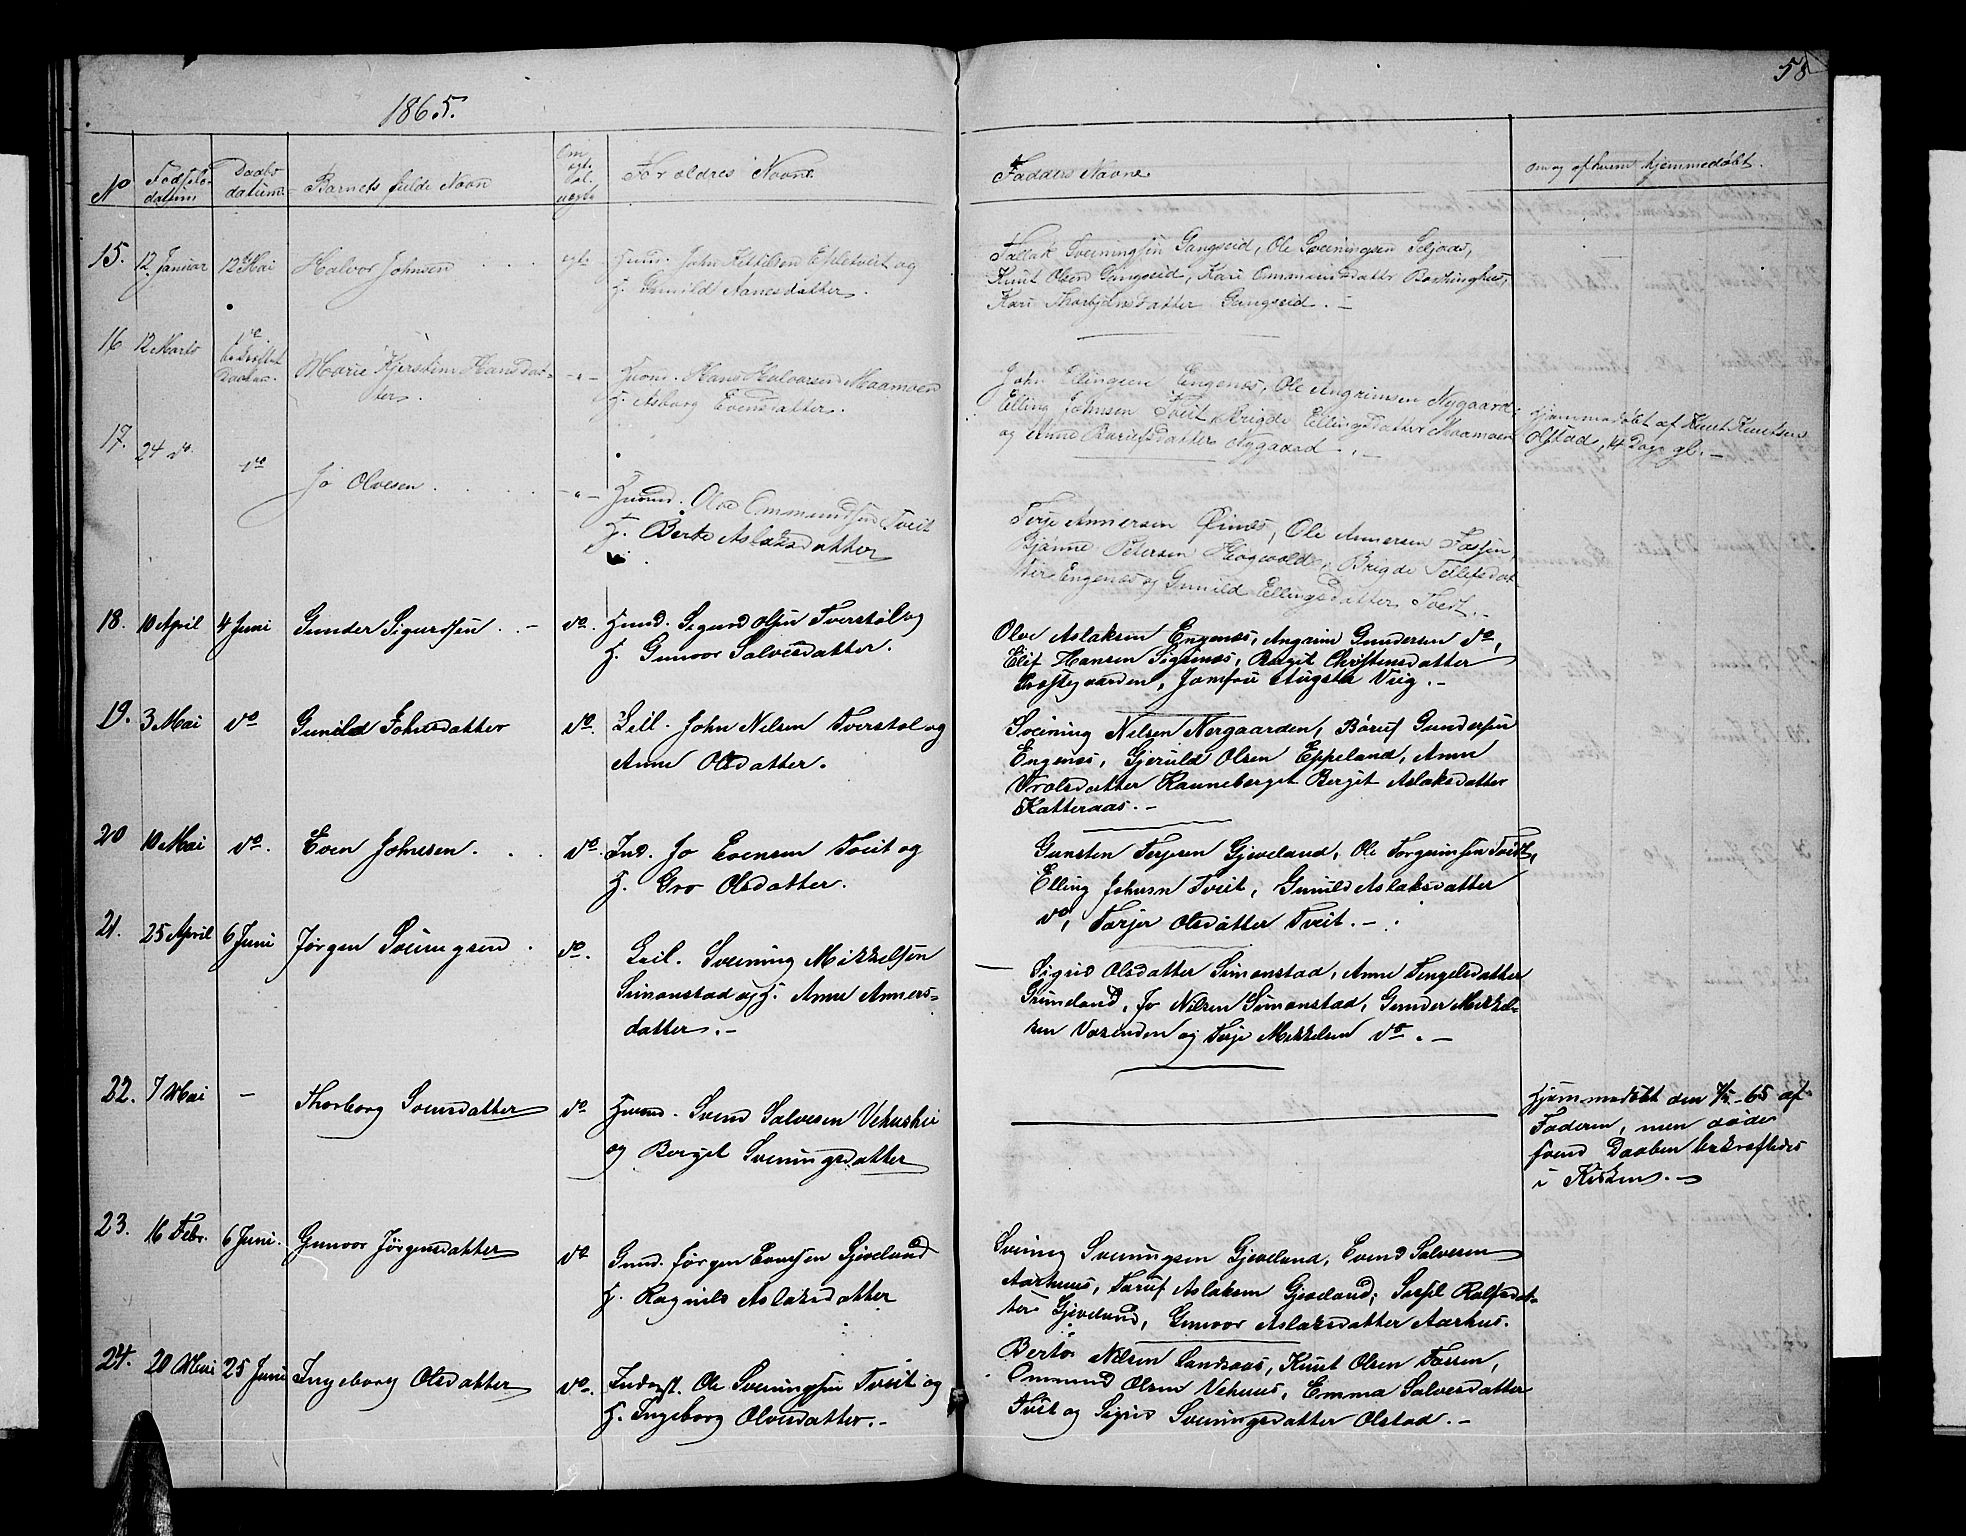 58
1865.
No
Fødsels-
datum
Daabs
datum
Barnets fulde Navn
Om
egte
el.
uegte
Forældres Navne
Fadderes Navne
Om og af hvem hjemmedøbt.
15. 12 Januar 12 Mai Halvor Johnsen egte Huusmd. John Kittelsen Epletveit og
H. Gunild Aanesdatter.
Tellak Sveiningsen Gangseid, Ole Sveiningsen Seljaas,
Knut Olsen Gangseid, Kari Ommundsdatter
Kari Thorbjønsdatter Gangseid.
16 12 Marts do bekræftet Daaben Marie Kjerstine Hansdat-
ter.
Huusmd. Hans Halvorsen Maamoen
H. Asborg Evensdatter.
John Ellingsen Engenes, Ole Angrimsen Nygaard,
Elling Johnsen Tveit, Brigde Ellingsdatter Maamoen
og Anne Barufsdatter Nygaard.
Hjemmedøbt af Knut Knutsen
Olstad, 14 Dage gl.
17. 24 do do Jo Olvesen
Huusmd. Olve Ommundsen Tveit
H. Berte Aslaksdatter
Terje Annersen Øines, Ole Annersen Fossen,
Bjønne Petersen Heogvold, Brigde Tellefsdat
ter Engenes og Gunild Ellingsdatter Tveit.
18. 10 April 4 Juni Gunder Sigurdsen do. Huusmd. Sigurd Olsen Tverstøl og
H. Gunvor Salvesdatter.
Olve Aslaksen Engenes, Angrim Gundersen do,
Elif Hansen Sigenes, Birgit Christensdatter
Præstegaarden, Jomfru Augusta Viig.
19. 3 Mai do Gunild Johnsdatter do. Leil. John Nilsen Tverstøl og
Anne Olsdatter.
Sveining Nilsen Nergaarden, Baruf Gundersen
Engenes, Gjeruld Olsen Eppeland, Anne
Vrolsdatter Ranneberget Berget Aslaksdatter
Katteraas.
20 10 Mai do. Even Johnsen. do. Ind. Jo Evensen Tveit og
H. Gro Olsdatter.
Gunsten Terjesen Gjeveland, Ole Torgrimsen Tveit,
Elling Johnsen Tveit, Gunild Aslaksdatter
do, Tarjer Olsdatter Tveit.
21. 25 April 6 Juni Jørgen Sveiningsen do. Leil. Sveining Mikkelsen
Simonstad og H. Anne Anners-
datter.
Sigrid Olsdatter Simonstad, Anne Tengelsdatter
Grimeland, Jo Nilsen Simonstad, Gunder Mikkel-
sen Vasenden og Terje Mikkelsen do.
22. 7 Mai - Thorborg Svensdatter do Huusmd. Svend Salvesen Vehushei
og Berget Sveningsdatter
Hjemmedøbt den 7/5-65 af
Faderen, men døde
førend Daaben bekræftedes
i Kirken.
23. 16 Febr. 6 Juni. Gunvor Jørgensdatter do Gmd. Jørgen Evensen Gjeveland
H. Ragnild Aslaksdatter
Svening Sveningsen Gjeveland, Evend Salvesen
Aarhuus, Taruf Aslaksen Gjeveland, Sissel Rolfsdat-
ter Gjeveland, Gunvor Aslaksdatter Aarhus.
24. 20 Mai 25 Juni Ingeborg Olsdatter do. Inderst. Ole Sveningsen Tveit og
H. Ingeborg Olvesdatter.
Berto Nilsen Landsaas, Knut Olsen Fossen,
Ommund Olsen Vehuus, Emma Salvesdatter
Tveit og Sigrid Sveningsdatter Olstad.